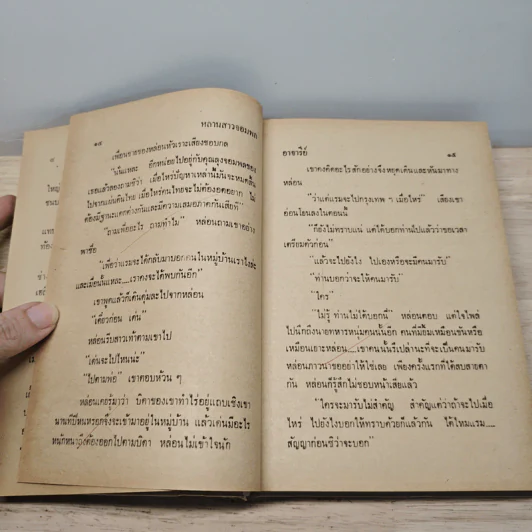 ๑๔
หลานสาวจอมพล
เพื่อนชายของหล่อนหัวเราะเสียงชอบกล
"นั่นแหละ อีกหน่อยไปอยู่กับคุณลุงจอมพลของ
เธอแล้วลองถามซีว่า เมื่อไหร่ปัญหาเหล่านั้นจะหมดสิ้น
ไปจากแผ่นดินไทย เมื่อไหร่คนไทยจะไม่ต้องอดอยาก ไม่
ต้องมีฐานะแตกต่างกันและมีความเสมอภาคกันเสียที"
"ถามเพื่ออะไร ถามทำไม" หล่อนถามเขาอย่าง
พาซื่อ
"เพื่อว่าแรมจะได้กลับมาบอกคนในหมู่บ้านเราไงล่ะ
และเมื่อนั้นแหละ.....เราคงจะได้พบกันอีก"
เขาพูดแล้วก็เดินดุ่มละไปจากหล่อน
"เดี๋ยวก่อน เด่น"
หล่อนรีบสาวเท้าตามเขาไป
"เด่นจะไปไหนน่ะ"
"ไปตามพ่อ" เขาตอบห้วน ๆ
หล่อนเคยรู้มาว่า บิดาของเขาทำไร่อยู่แถบเชิงเขา
นานทีปีหนหรอกจึงจะเข้ามาอยู่ในหมู่บ้าน แล้วเด่นมีอะไร
หนักหนาถึงต้องออกไปตามบิดา หล่อนไม่เข้าใจนัก
อาจารีย์
๑๕
เขาคงคิดอะไรสักอย่างจึงหยุดเดินและหันมาทาง
หล่อน
"ว่าแต่แรมจะไปกรุงเทพ ๆ เมื่อไหร่" เสียงเขา
อ่อนโยนลงในตอนนี้
"ก็ยังไม่ทราบแน่ แต่ได้บอกท่านไปแล้วว่าขอเวลา
เตรียมตัวก่อน"
"แล้วจะไปยังไง ไปเองหรือจะมีคนมารับ"
"ท่านบอกว่าจะให้คนมารับ"
"ใคร"
"ไม่รู้ ท่านไม่ได้บอกนี่" หล่อนตอบ แต่ใจโพล่
ไปนึกถึงนายทหารหนุ่มคนนั้นอีก คนที่มียิ้มเหมือนขันหรือ
เหมือนเยาะหล่อน.....เขาคนนั้นรึเปล่านะที่จะเป็นคนมารับ
หล่อนภาวนาขออย่าให้ใช่เลย เพียงครั้งแรกที่ได้สบสายตา
กัน หล่อนก็รู้สึกไม่ชอบหน้าเสียแล้ว
"ใครจะมารับไม่สำคัญ สำคัญแต่ว่าถ้าจะไปเมื่อ
ไหร่ ไปยังไงบอกให้ทราบด้วยก็แล้วกัน ได้ไหมแรม.....
สัญญาก่อนซิว่าจะบอก"